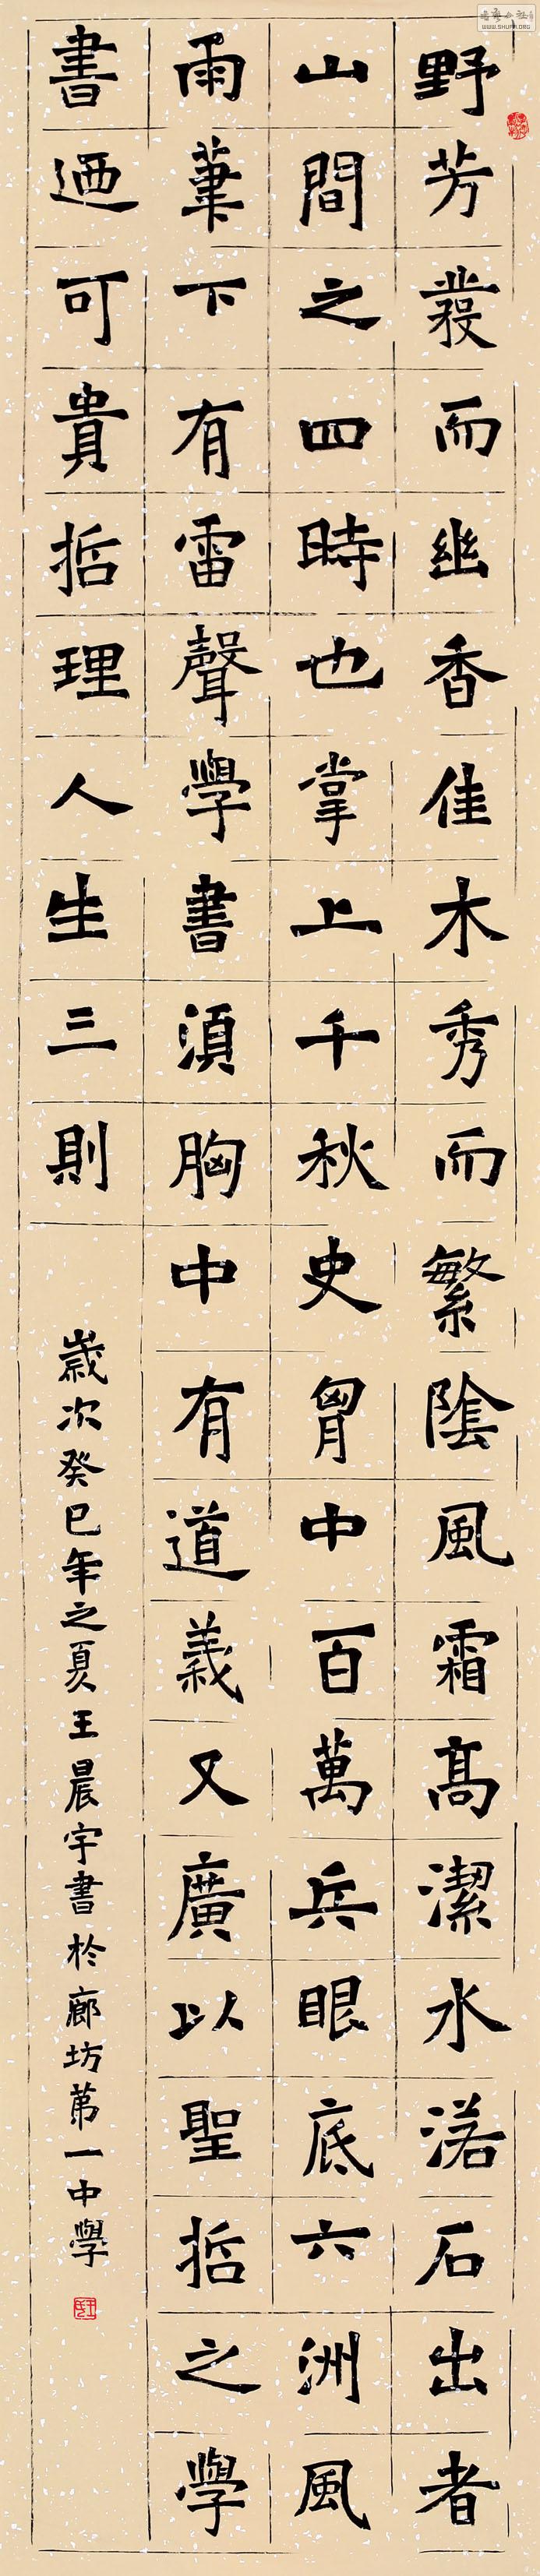 野芳發而幽香佳木秀而繁陰風霜髙潔水落石出者
山間之四時也掌上千秋史胷中百萬兵眼底六洲風
雨筆下有雷聲學書須胸中有道義又廣以聖哲之學
書迺可貴哲理人生三則
歲次癸巳年之夏王晨宇書於廊坊第一中學